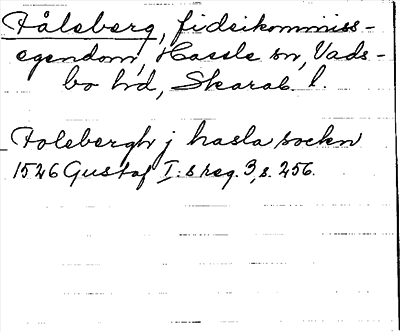 Fåleberg, fideikommiss-
egendom, Hassle sn, Vads-
bo hd, Skarab. l.
Folebergh j hasla sockn
1526 Gustaf I:s reg. 3, s. 256.